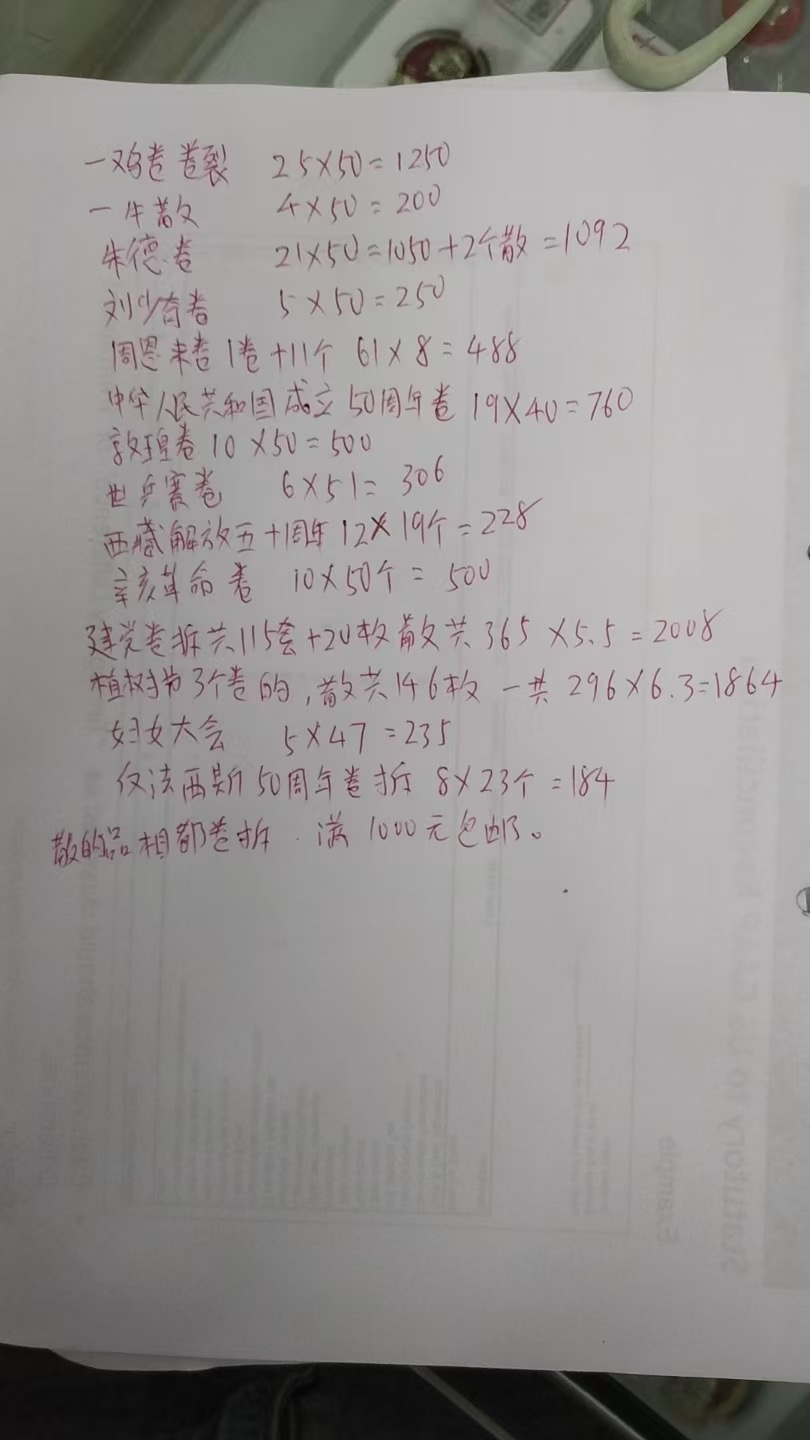 一鸡卷卷裂 25×50=1250
一牛散 4×50=200
朱德卷 21×50=1050+2个散=1092
刘少奇卷 5×50=250
周恩来卷1卷+11个 61×8=488
中华人民共和国成立50周年卷 19×40=760
敦煌卷10×50=500
世乒赛卷 6×51=306
西藏解放五十周年12×19个=228
辛亥革命卷 10×50个=500
建党卷拆共115套+20枚散共365×5.5=2008
植树节3个卷的,散共146枚 一共296×6.3=1864
妇女大会 5×47=235
反法西斯50周年卷拆 8×23个=184
散的品相都卷拆.满1000元包邮。
Example
Statutory to US GAAP